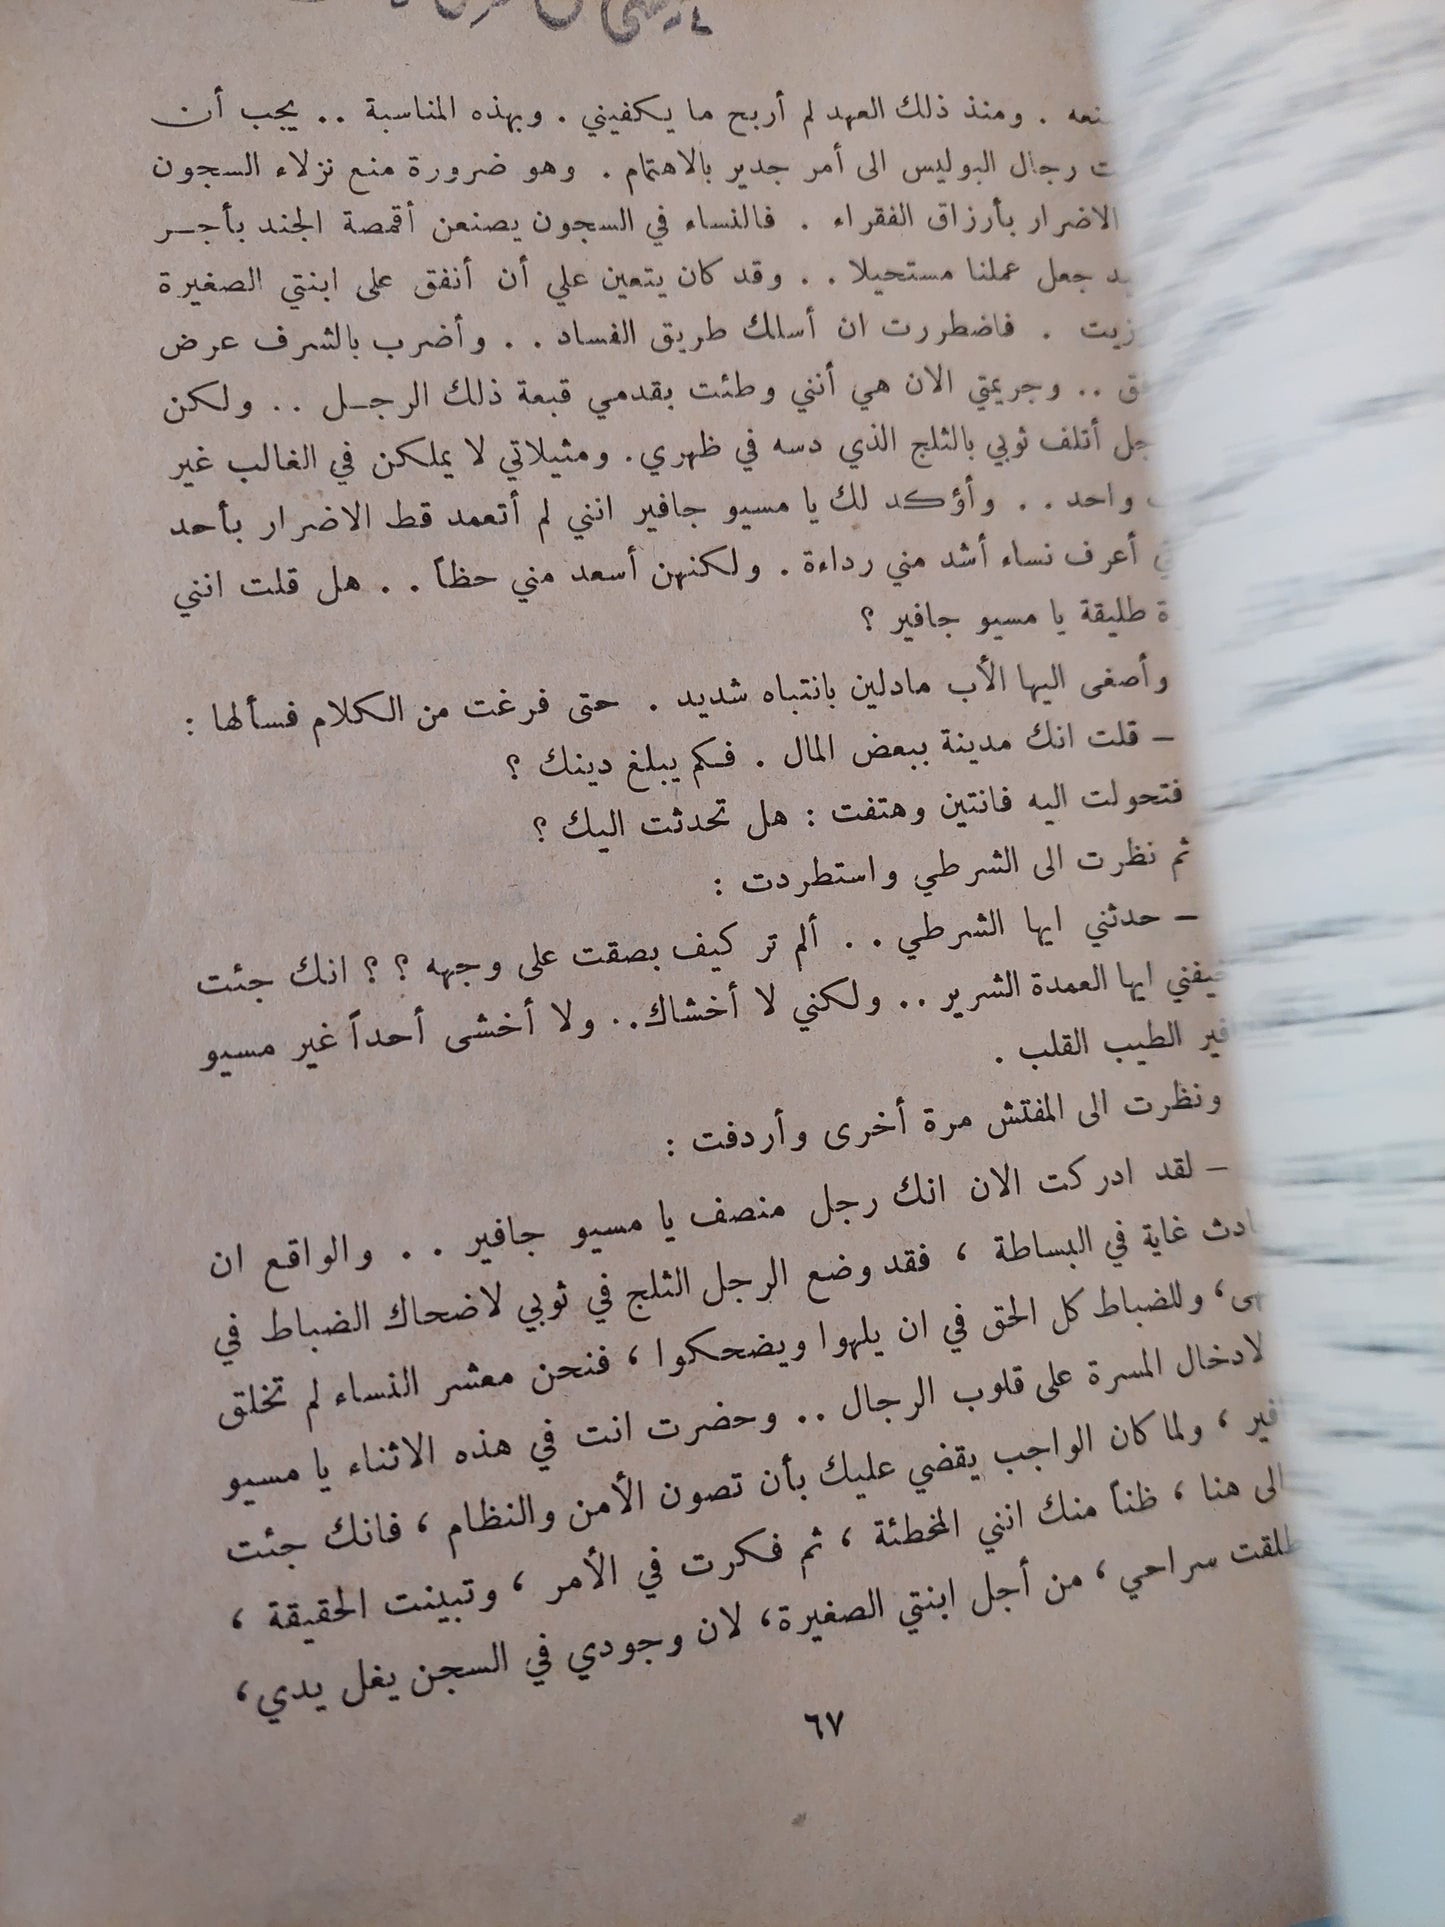 . ومنذ ذلك العهد لم أربح ما يكفيني . وبهذه المناسبة .. يجب أن
رجال البوليس الى أمر جدير بالاهتمام . وهو ضرورة منع نزلاء السجون
الاضرار بأرزاق الفقراء . فالنساء في السجون يصنعن أقمصة الجند بأجر
جعل عملنا مستحيلا .. وقد كان يتعين علي أن أنفق على ابنتي الصغيرة
. فاضطررت ان أسلك طريق الفساد .. وأضرب بالشرف عرض
.. وجريمتي الان هي أنني وطئت بقدمي قبعة ذلك الرجل .. ولكن
أتلف ثوبي بالثلج الذي دسه في ظهري . ومثيلاتي لا يملكن في الغالب غير
واحد .. وأؤكد لك يا مسيو جافير انني لم أتعمد قط الاضرار بأحد
أعرف نساء أشد مني رداءة . ولكنهن أسعد مني حظاً .. هل قلت انني
طليقة يا مسيو جافير ؟
وأصغى اليها الأب مادلين بانتباه شديد . حتى فرغت من الكلام فسألها :
– قلت انك مدينة ببعض المال . فكم يبلغ دينك ؟
فتحولت اليه فانتين وهتفت : هل تحدثت اليك ؟
ثم نظرت الى الشرطي واستطردت :
– حدثني ايها الشرطي .. ألم تر كيف بصقت على وجهه ؟ ؟ انك جئت
ايها العمدة الشرير .. ولكني لا أخشاك .. ولا أخشى أحداً غير مسيو
الطيب القلب .
ونظرت الى المفتش مرة أخرى وأردفت :
– لقد ادركت الان انك رجل منصف يا مسيو جافير .. والواقع ان
غاية في البساطة ، فقد وضع الرجل الثلج في ثوبي لاضحاك الضباط في
، وللضباط كل الحق في ان يلهوا ويضحكوا ، فنحن معشر النساء لم تخلق
لادخال المسرة على قلوب الرجال .. وحضرت انت في هذه الاثناء يا مسيو
، ولما كان الواجب يقضي عليك بأن تصون الأمن والنظام ، فانك جئت
الى هنا ، ظناً منك انني المخطئة ، ثم فكرت في الأمر ، وتبينت الحقيقة ،
سراحي ، من أجل ابنتي الصغيرة ، لان وجودي في السجن يغل يدي ،
٦٧